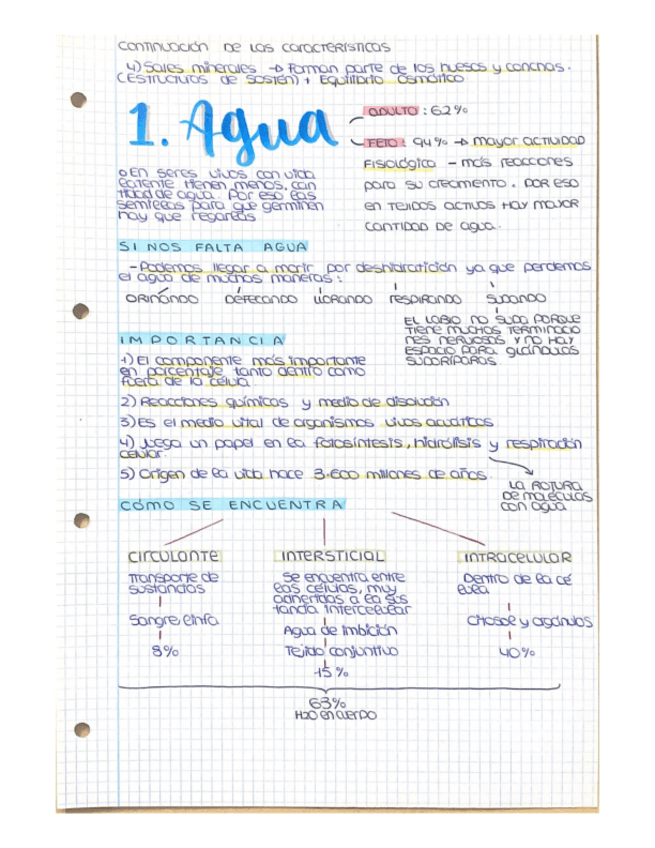 CONTINUACIÓN DE LAS CARACTERÍSTICAS
4) Sales minerales → Forman parte de los huesos y conchas.
(ESTRUCTURAS DE SOSTÉN) + Equilibrio osmótico
1. Agua
ADULTO: 62%
FETO: 94% → mayor ACTIVIDAD
FISIOLÓGICA - más reacciones
para su crecimiento. POR ESO
EN TEJIDOS ACTIVOS HAY MAYOR
CANTIDAD DE AGUA.
o En seres vivos con vida
latente tienen menos, can
tidad de agua. Por eso las
semillas para que germinen
hay que regarlas
SI NOS FALTA AGUA
- Podemos llegar a morir por deshidratición ya que perdemos
el agua de muchas maneras:
ORINANDO DEFECANDO LLORANDO RESPIRANDO SUDANDO
EL LABIO NO SUDA PORQUE
TIENE MUCHAS TERMINACIO
NES NERVIOSAS Y NO HAY
ESPACIO PARA GLÁNDULAS
SUDORÍPARAS.
IMPORTANCIA
1) El componente más importante
en porcentaje tanto dentro como
fuera de la célula.
2) Reacciones químicas y medio de disolución
3) Es el medio vital de organismos vivos acuáticos
4) Juega un papel en la fotosíntesis, hidrólisis y respiración
celular.
5) Origen de la vida hace 3.600 millones de años.
LA ROTURA
DE MOLÉCULAS
CON AGUA
CÓMO SE ENCUENTRA
CIRCULANTE INTERSTICIAL INTRACELULAR
Transporte de
sustancias
Sangre, linfa
8%
Se encuentra entre
las células, muy
adheridas a la sus
tancia intercelular
Agua de imbición
Tejido conjuntivo
15%
Dentro de la cé
lula
Citosol y orgánulos
40%
63%
H2O EN CUERPO